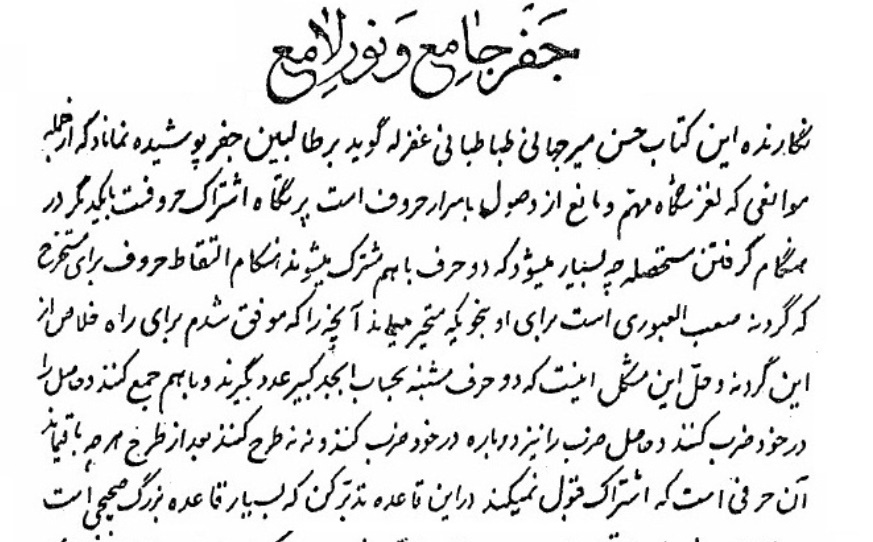 جفر جامع و نور لامع
نگارنده این کتاب حسن میرجهانی طباطبائی غفرله گوید بر طالبین جفر پوشیده نماناد که از جمله
موانعی که لغزشگاه مهم و مانع از وصول باسرار حروف است پرتگاه اشتراک حروفست بایکدیگر در
هنگام گرفتن مستحصله چه بسیار میشود که دو حرف باهم مشترک میشوند هنگام التقاط حروف برای مستخرج
که گردنه صعب العبوری است برای او بنحویکه متحیر میماند آنچه را که موفق شدم برای راه خلاص از
این گردنه و حل این مشکل اینست که دو حرف مشتبه بحساب ابجد کبیر عدد گیرند و باهم جمع کنند و حاصل را
در خود ضرب کنند و حاصل ضرب را نیز دوباره در خود ضرب کنند و نه نه طرح کنند بعد از طرح هر چه باقیماند
آن حرفی است که اشتراک قبول نمیکند در این قاعده تدبر کن که بسیار قاعده بزرگ صحیحی است